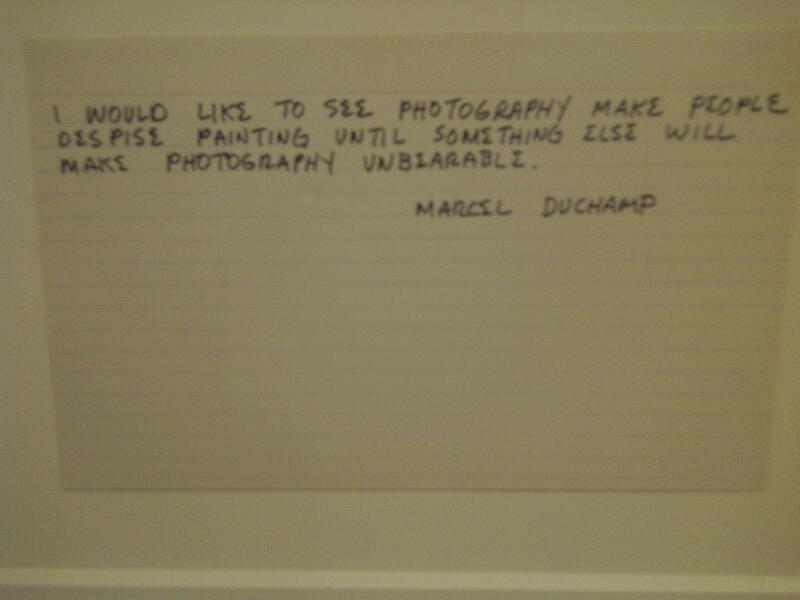 I WOULD LIKE TO SEE PHOTOGRAPHY MAKE PEOPLE
DESPISE PAINTING UNTIL SOMETHING ELSE WILL
MAKE PHOTOGRAPHY UNBEARABLE.
MARCEL DUCHAMP